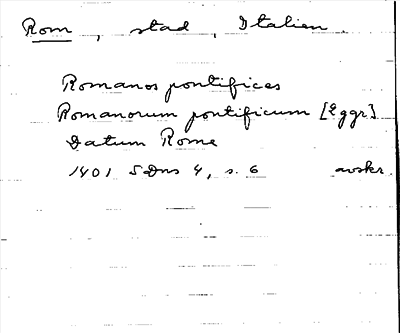 Rom, stad, Italien
Romanos pontifices
Romanorum pontificum [Eggr]
Datum Rome
1401 SDns 4, s. 6 avskr.